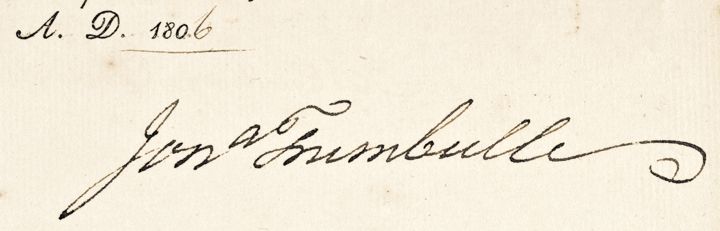 A. D. 1806
Jonᵃ Trumbull